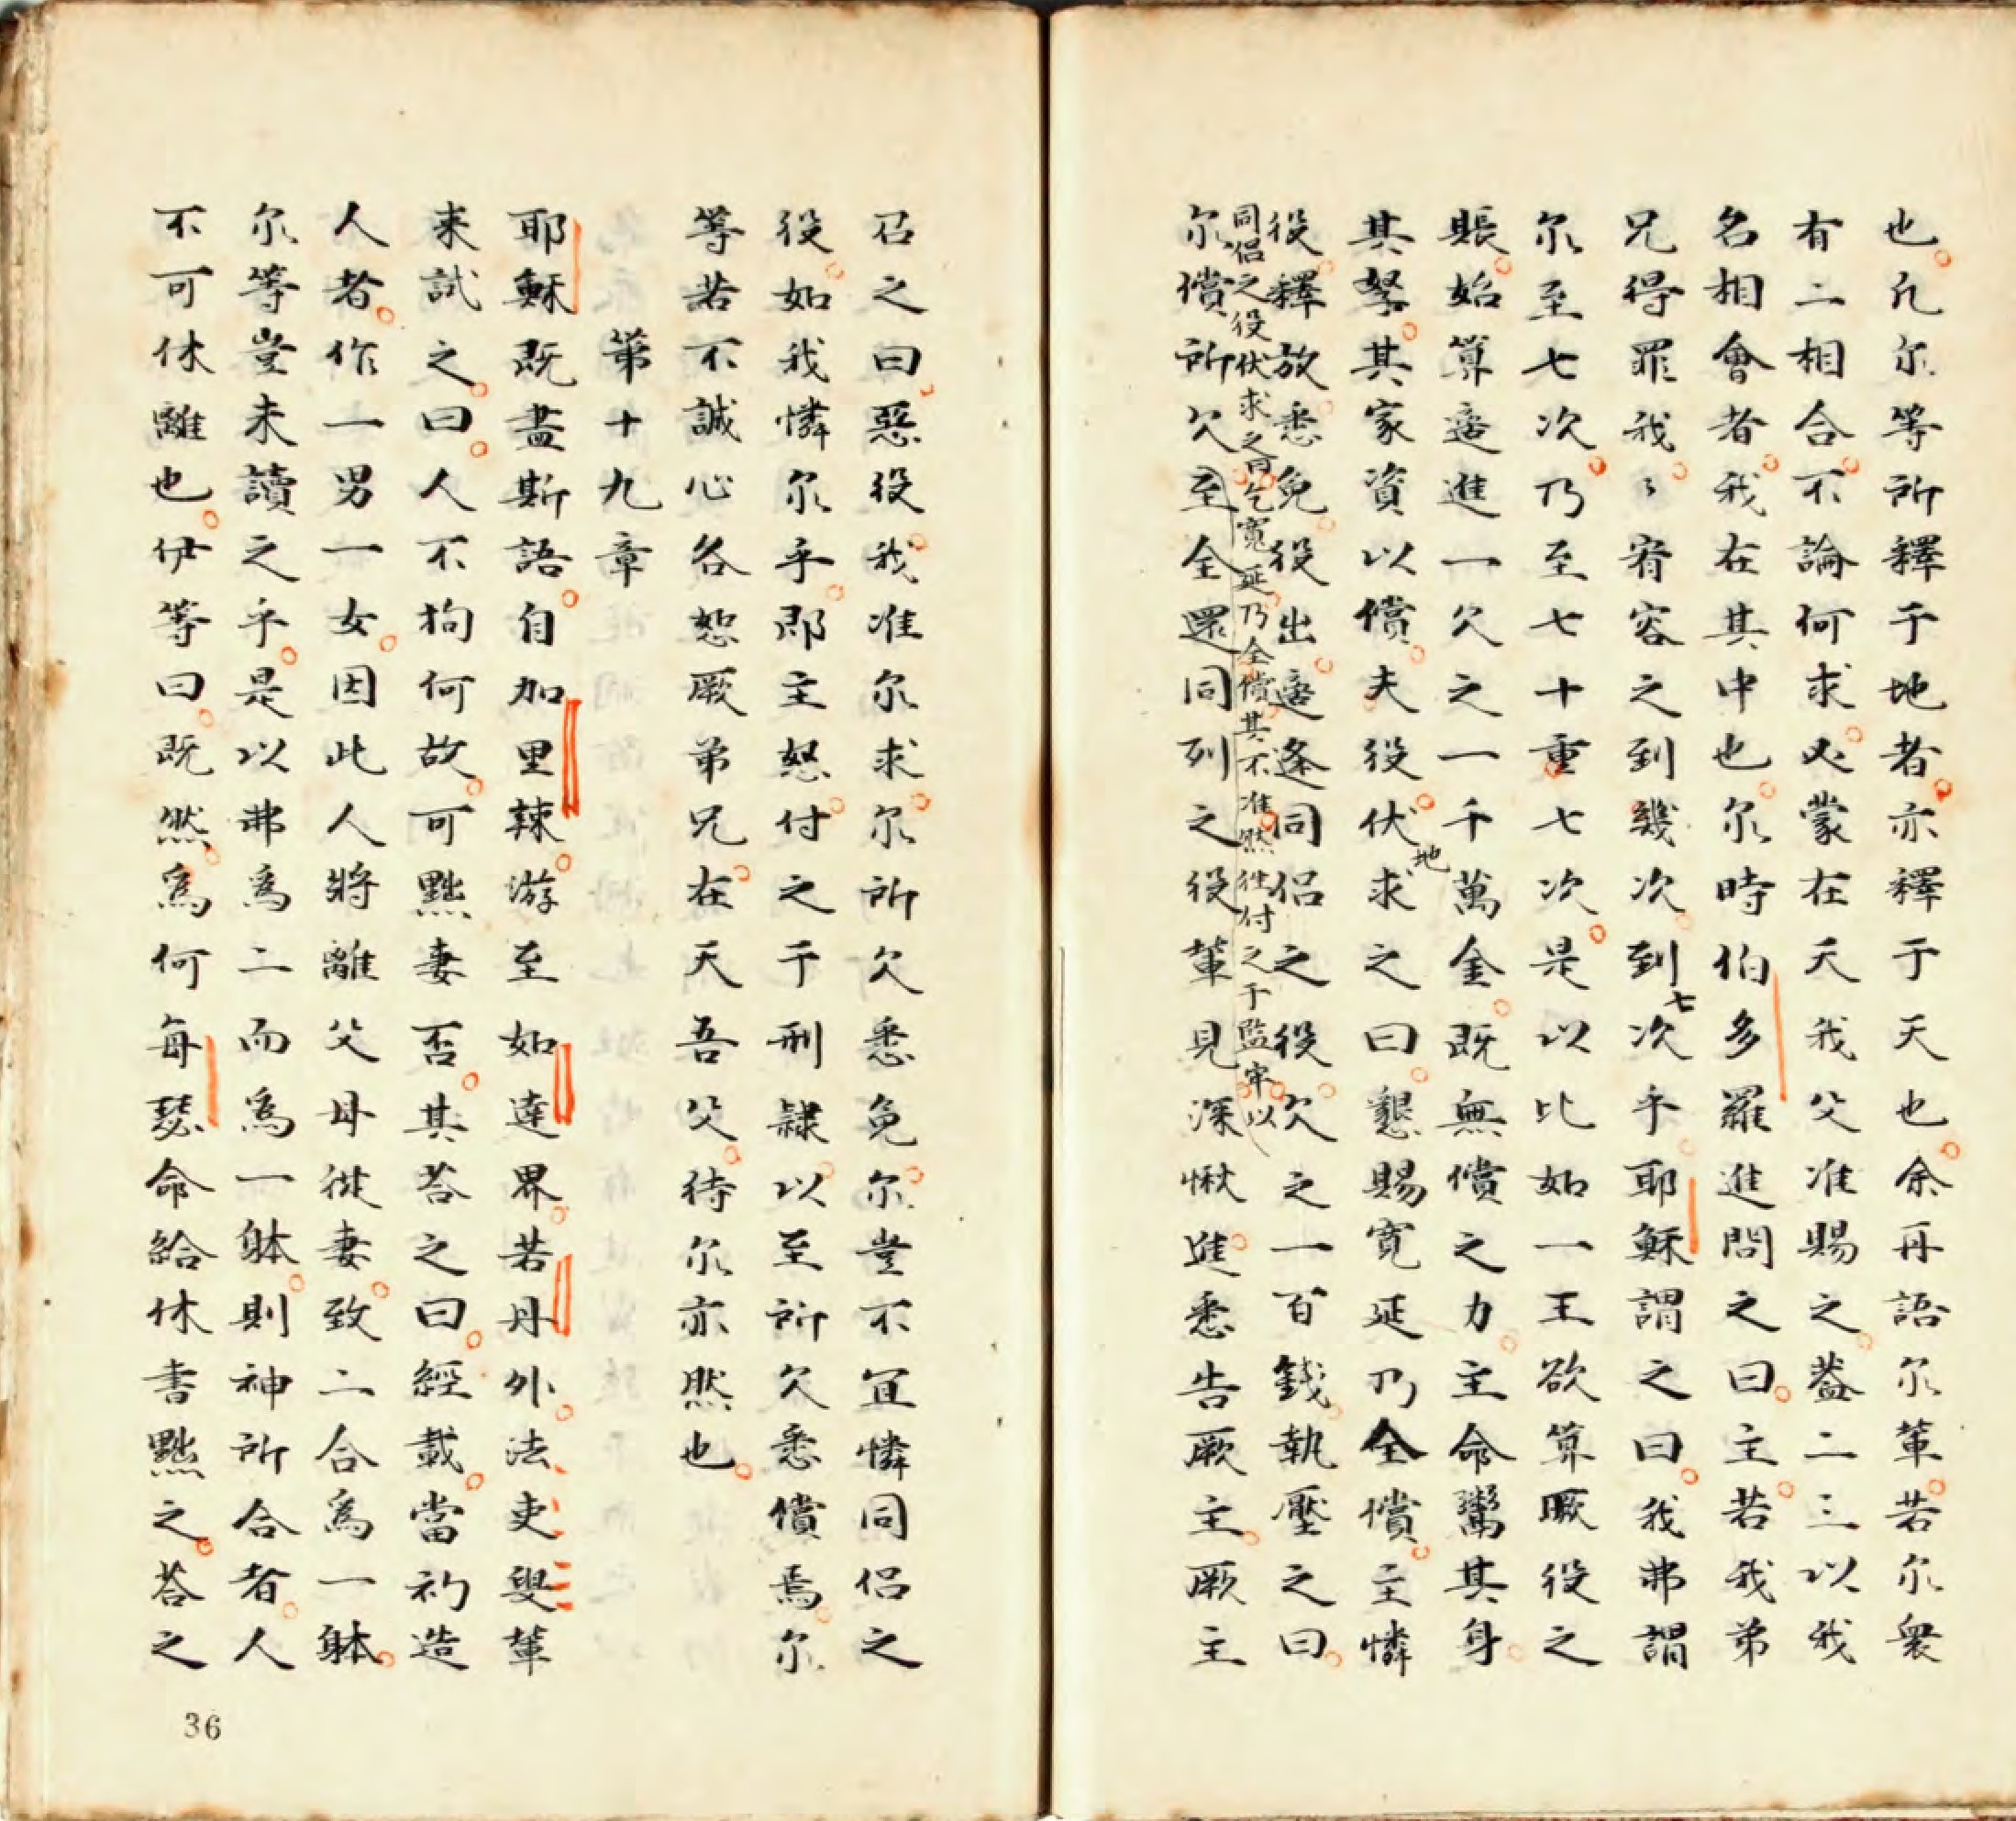 也凡尔等所釋于地者亦釋于天也余再語尔輩若尔衆
有二相合不論何求必蒙在天我父准賜之蓋二三以我
名相會者我在其中也尔時伯多羅進問之曰主若我弟
兄得罪我〻宥容之到幾次到七次乎耶穌謂之曰我弗謂
尔至七次乃至七十重七次是以比如一王欲算厥役之
賬始算適進一欠之一千萬金既無償之力主命鬻其身
其孥其家資以償夫役伏地求之曰懇賜寛延乃全償主憐
役釋放悉免役出適逢同侣之役欠之一百錢執壓之曰
同侣之役伏求之曰乞寬延乃全償其不准然往付之于監牢以
尔償所欠至全還同列之役輩見深愀進悉告厥主厥主
召之曰惡役我准尔求尔所欠悉免尔豈不宜憐同侣之
役如我憐尔乎即主怒付之于刑隸以至所欠悉償焉尔
等若不誠心各恕厥弟兄在天吾父待尔亦然也
第十九章
耶穌既盡斯語自加里辣游至如達界若丹外法吏叟輩
来試之曰人不拘何故可黜妻否其荅之曰經載當初造
人者作一男一女因此人將離父母從妻致二合爲一躰
尔等豈未讀之乎是以弗爲二而爲一躰則神所合者人
不可休離也伊等曰既然爲何每瑟命給休書黜之荅之
36